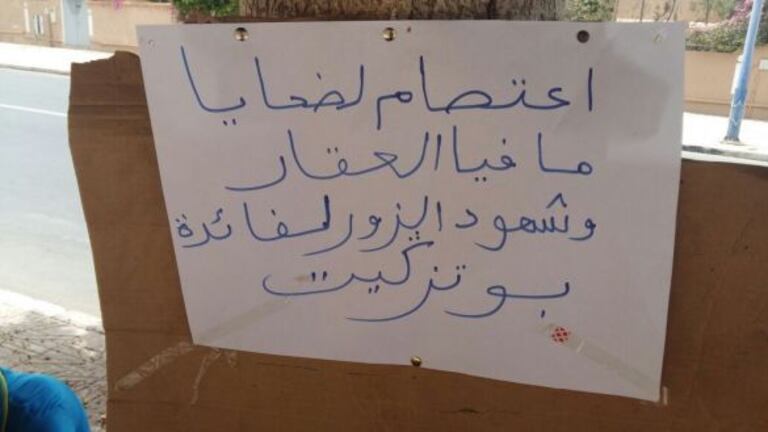 اعتصام لضحايا
مافيا العقار
وشهود الزور لفائدة
بوتزكيت